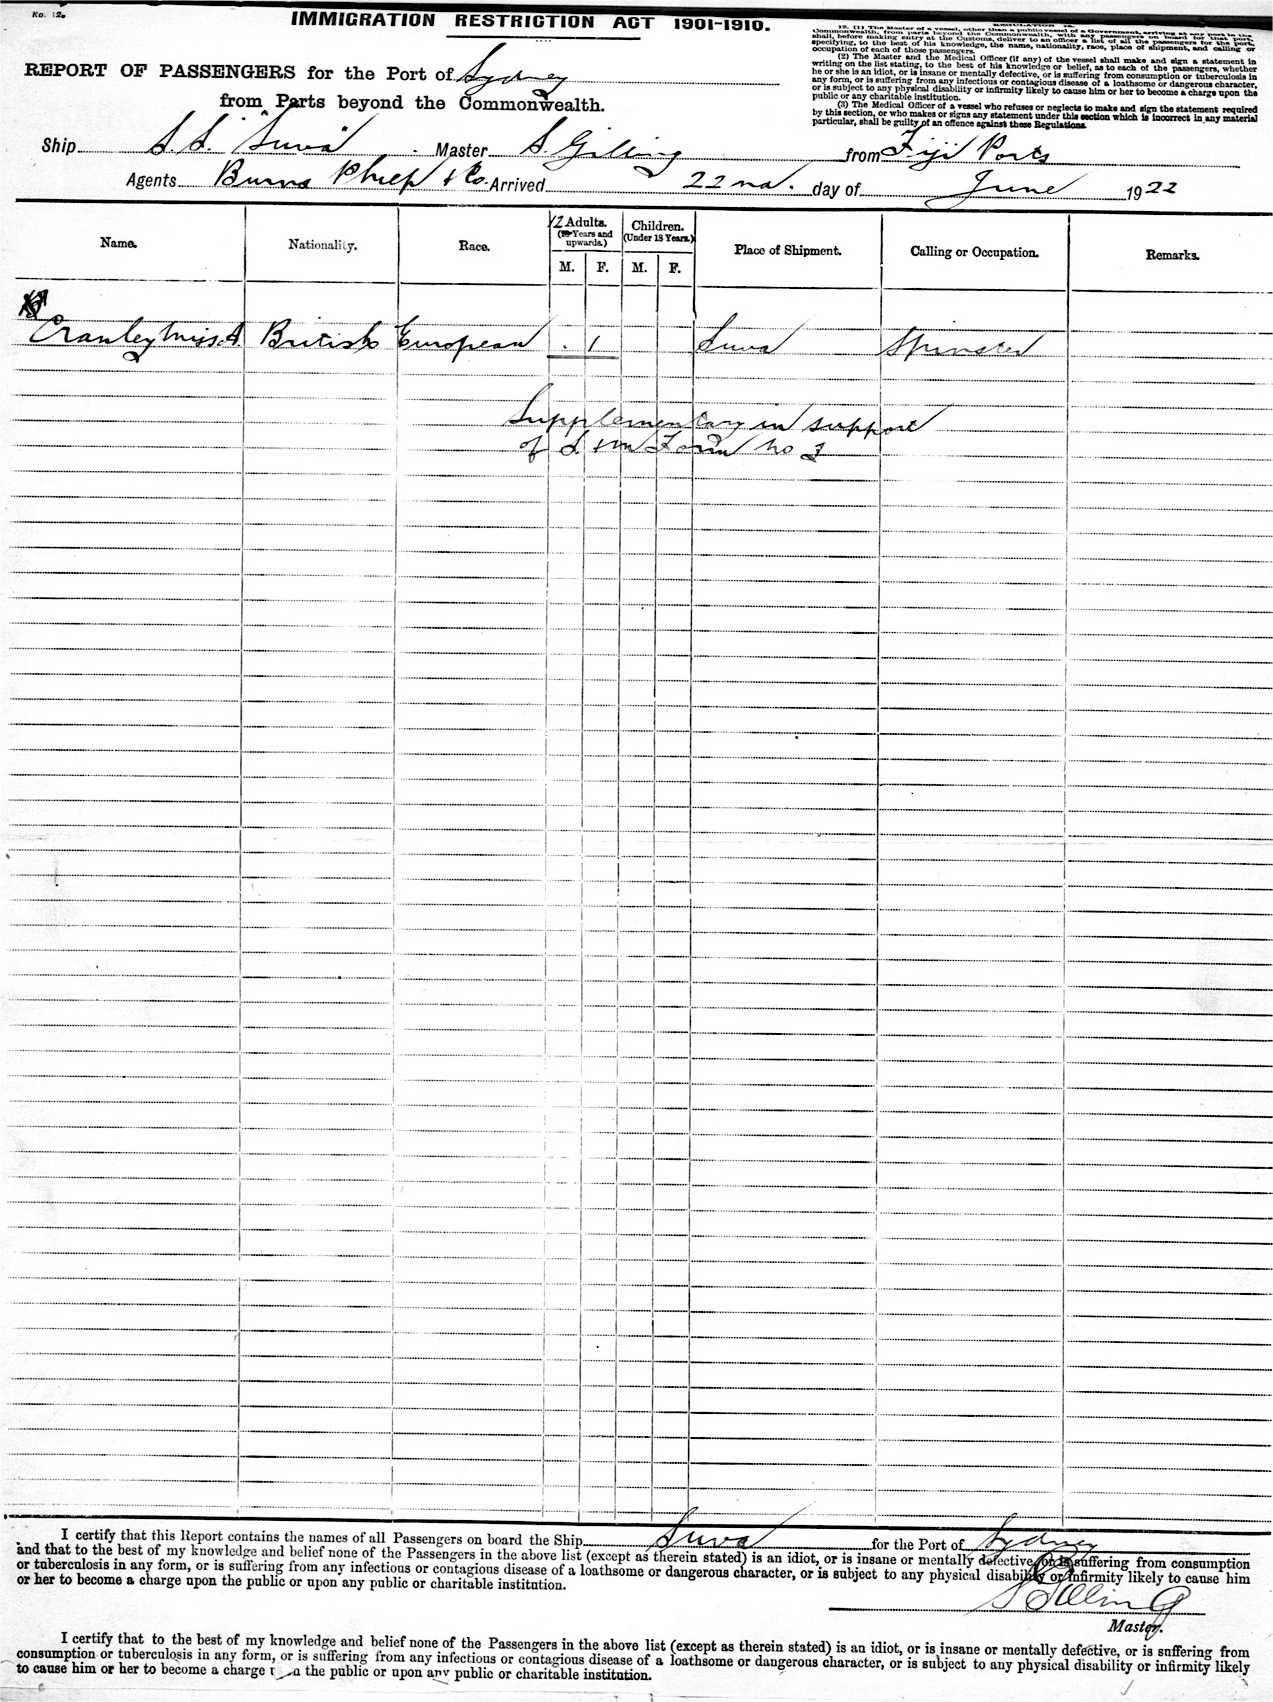 No. 12.
IMMIGRATION RESTRICTION ACT 1901-1910.
REPORT OF PASSENGERS for the Port of Sydney
from Parts beyond the Commonwealth.
REGULATION
12. (1) The Master of a vessel, other than a public vessel of a Government, arriving at any port in the
Commonwealth, from parts beyond the Commonwealth, with any passengers on board for that port,
shall, before making entry at the Customs, deliver to an officer a list of all the passengers for the port,
specifying, to the best of his knowledge, the name, nationality, race, place of shipment, and calling or
occupation of each of those passengers.
(2) The Master and the Medical Officer (if any) of the vessel shall make and sign a statement in
writing on the list stating, to the best of his knowledge or belief, as to each of the passengers, whether
he or she is an idiot, or is insane or mentally defective, or is suffering from consumption or tuberculosis in
any form, or is suffering from any infectious or contagious disease of a loathsome or dangerous character,
or is subject to any physical disability or infirmity likely to cause him or her to become a charge upon the
public or any charitable institution.
(3) The Medical Officer of a vessel who refuses or neglects to make and sign the statement required
by this section, or who makes or signs any statement under this section which is incorrect in any material
particular, shall be guilty of an offence against these Regulations.
Ship S.S. "Suva" Master S. Gilling from Fiji Ports
Agents Burns Philp & Co. Arrived 22nd. day of June 1922
Name. Nationality. Race. 12 Adults. (Years and upwards.) Children. (Under 18 Years.) Place of Shipment. Calling or Occupation. Remarks.
M. F. M. F.
Cranley Miss. A. British European . 1 Suva Spinster
Supplementary in support
of I & M Form No 3
I certify that this Report contains the names of all Passengers on board the Ship Suva for the Port of Sydney
and that to the best of my knowledge and belief none of the Passengers in the above list (except as therein stated) is an idiot, or is insane or mentally defective, or is suffering from consumption
or tuberculosis in any form, or is suffering from any infectious or contagious disease of a loathsome or dangerous character, or is subject to any physical disability or infirmity likely to cause him
or her to become a charge upon the public or upon any public or charitable institution.
S Gilling
Master.
I certify that to the best of my knowledge and belief none of the Passengers in the above list (except as therein stated) is an idiot, or is insane or mentally defective, or is suffering from
consumption or tuberculosis in any form, or is suffering from any infectious or contagious disease of a loathsome or dangerous character, or is subject to any physical disability or infirmity likely
to cause him or her to become a charge upon the public or upon any public or charitable institution.